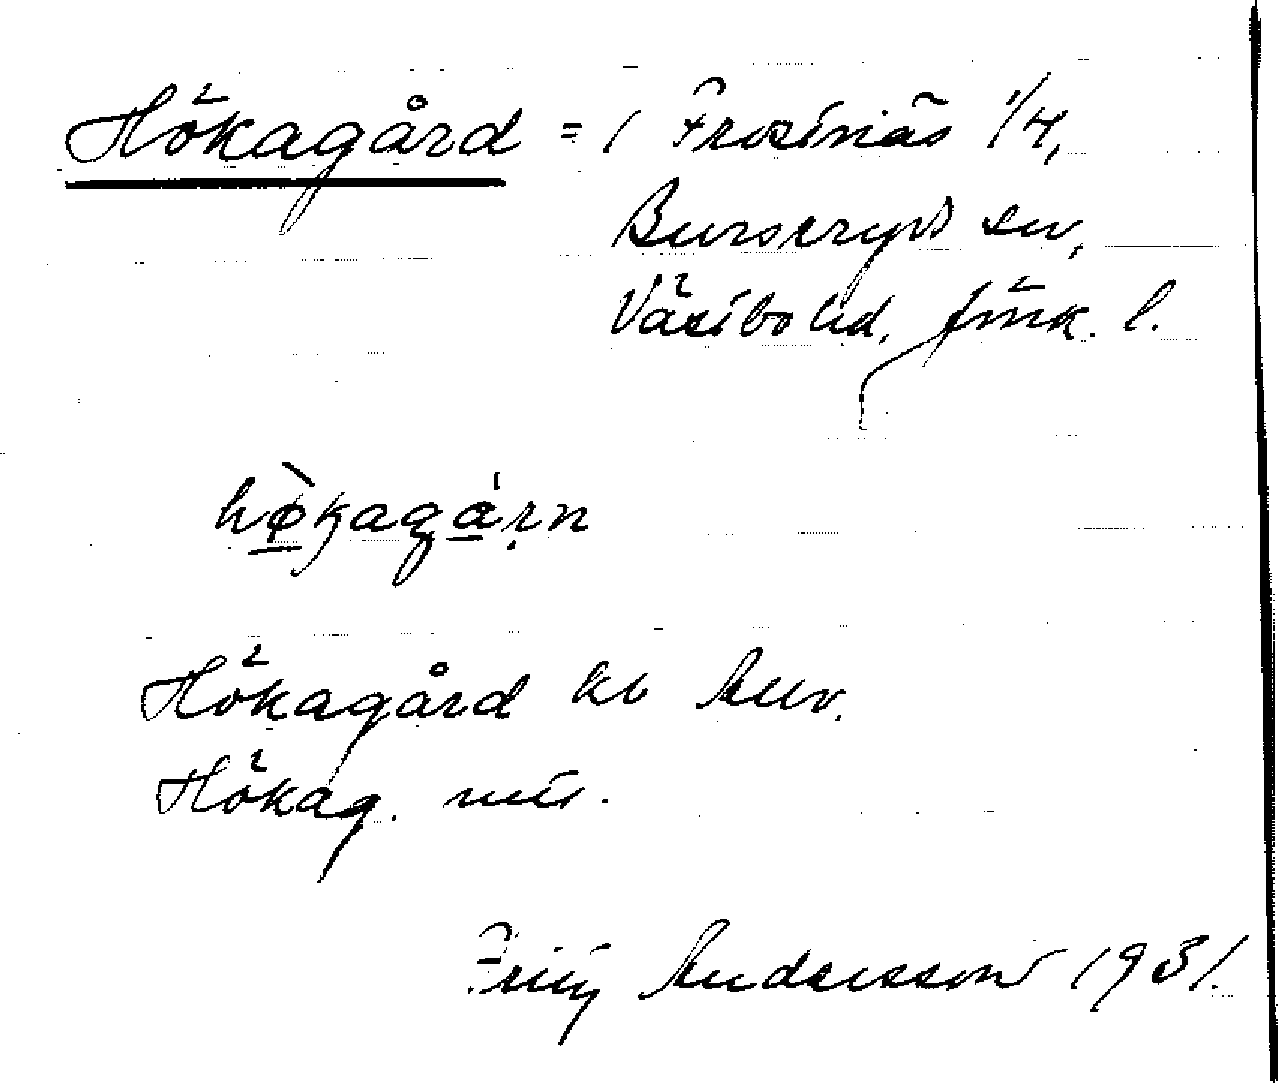 Hökagård = 1 Frostnäs 1/4,
Burseryds sn,
Västbo hd, Jönk. l.
hø̀kagárn
Hökagård kb Auv.
Hökag.
Andersson 1931.